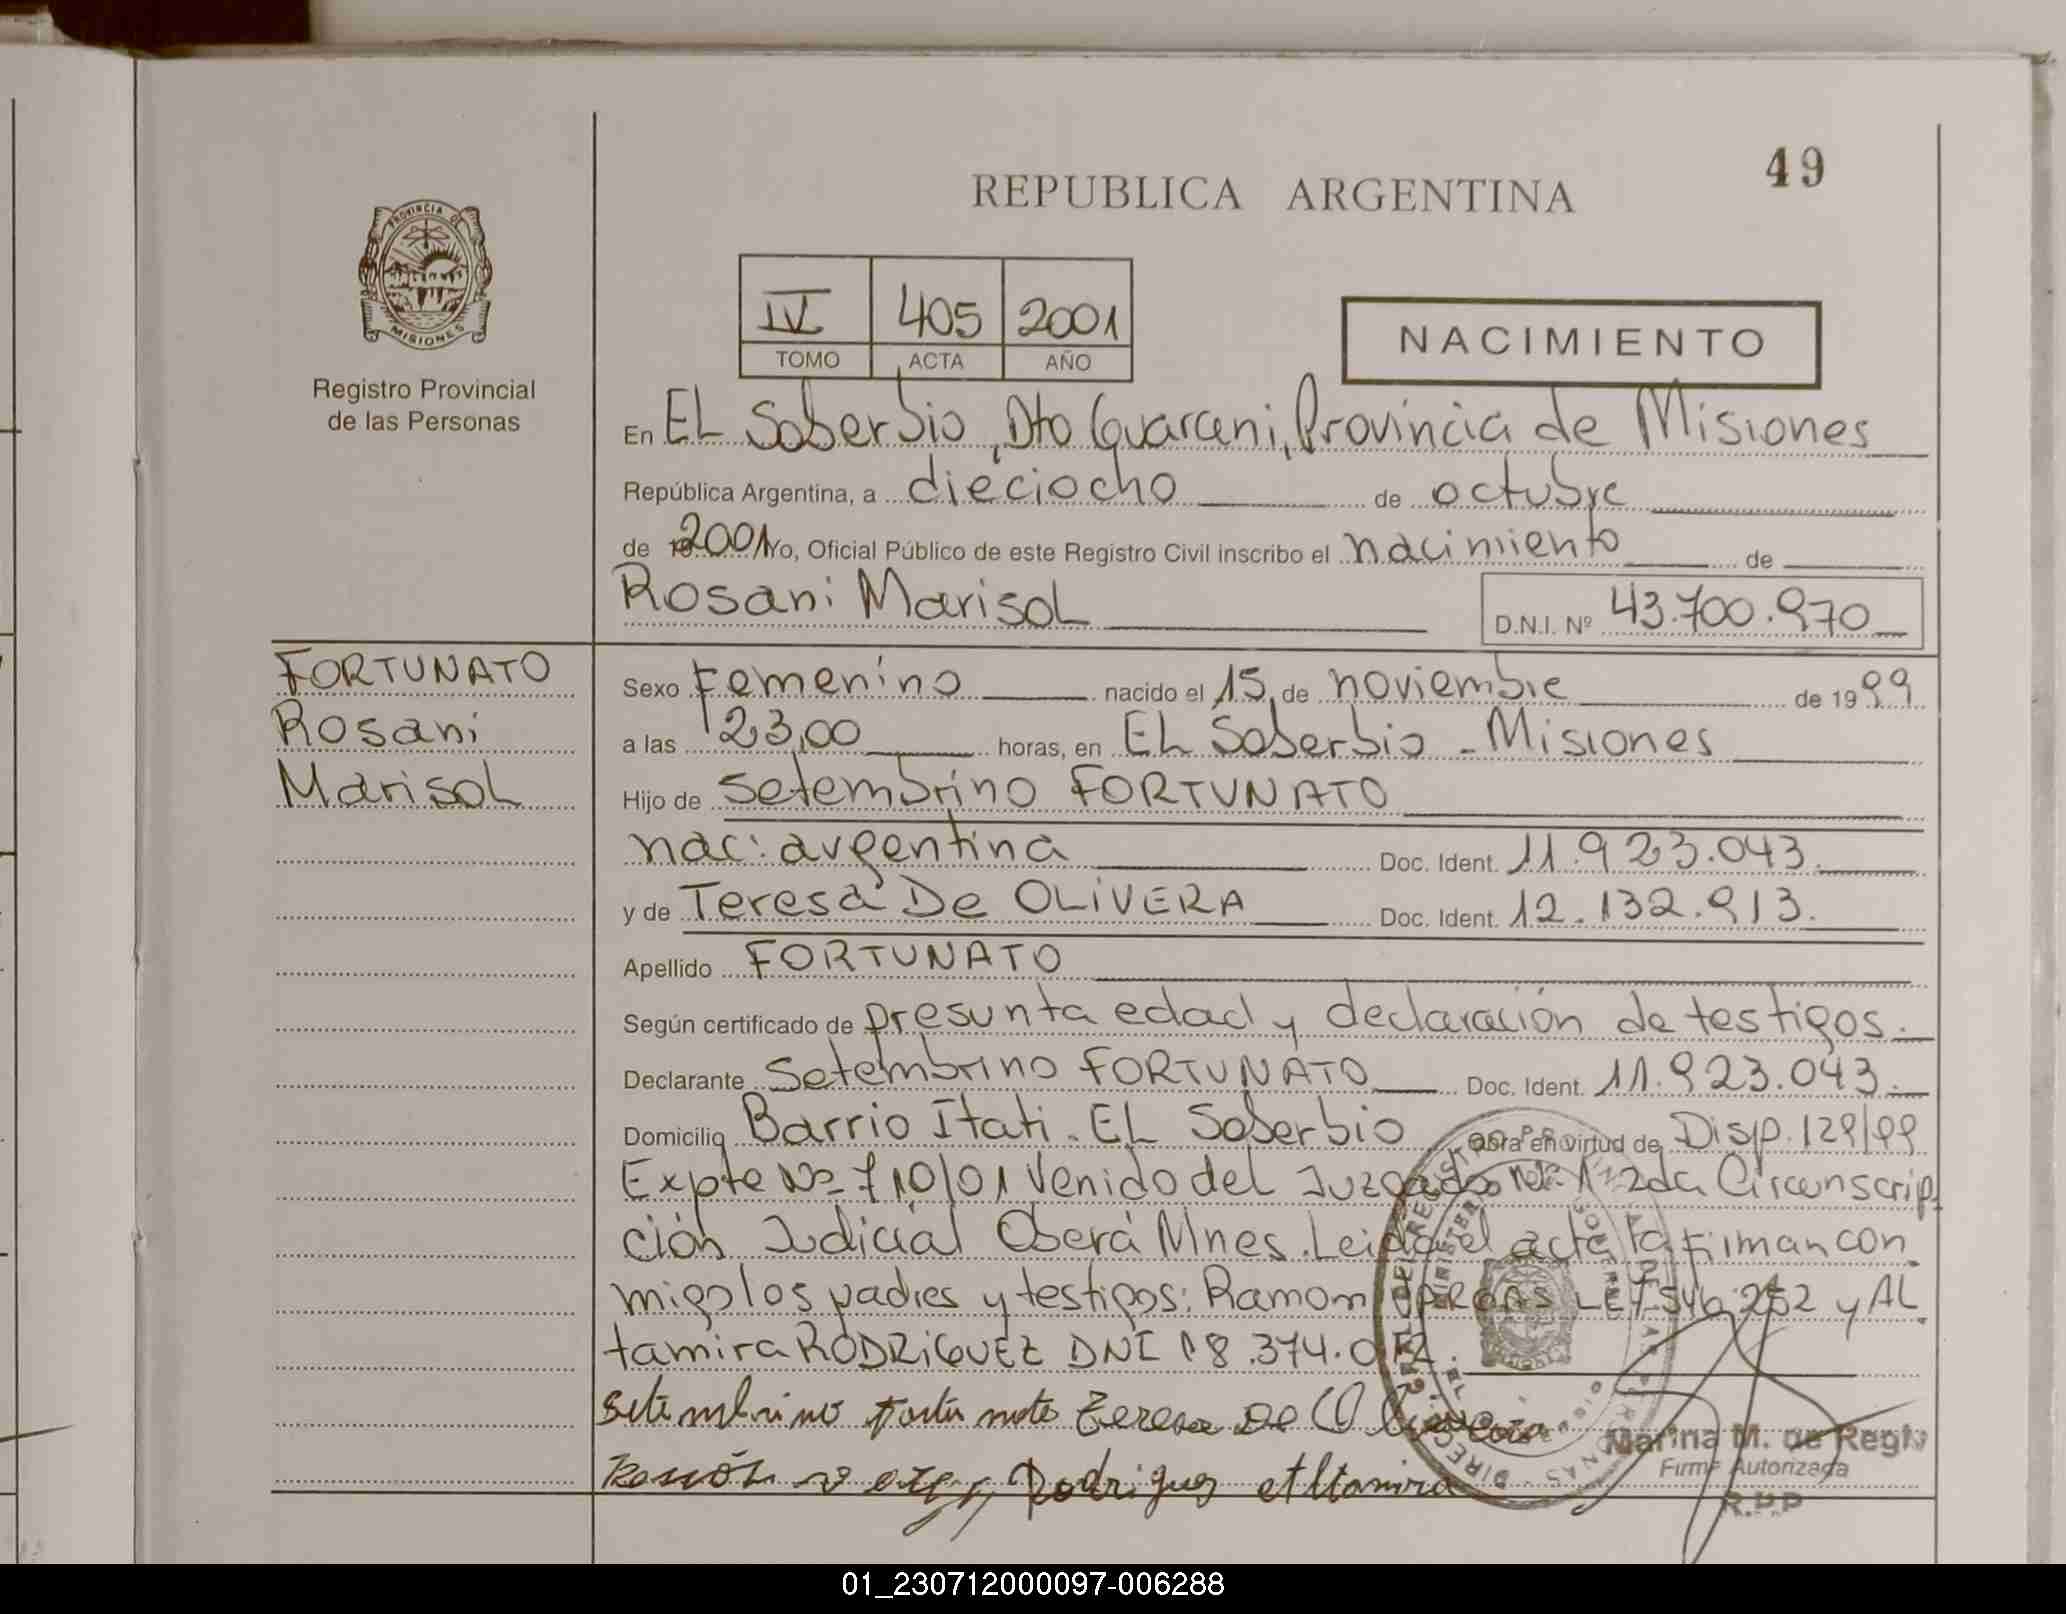 49
REPUBLICA ARGENTINA
PROVINCIA DE
MISIONES
Registro Provincial
de las Personas
IV 405 2001
TOMO ACTA AÑO
NACIMIENTO
En EL Soberbio, Dto Guarani, Provincia de Misiones
República Argentina, a dieciocho de octubre
de 2001 Yo, Oficial Público de este Registro Civil inscribo el nacimiento de
Rosani Marisol
D.N.I. Nº 43.700.970
FORTUNATO
Rosani
Marisol
Sexo Femenino nacido el 15 de noviembre de 1999
a las 23,00 horas, en EL Soberbio - Misiones
Hijo de Setembrino FORTUNATO
nac: argentina Doc. Ident. 11.923.043.
y de Teresa De OLIVERA Doc. Ident. 12.132.913.
Apellido FORTUNATO
Según certificado de presunta edad y declaración de testigos.
Declarante Setembrino FORTUNATO Doc. Ident. 11.923.043.
Domicilio Barrio Itati. EL Soberbio Obra en virtud de Disp. 129/99
Expte Nº 710/01 Venido del Juzgado 2da Circunscrip
ción Judicial Oberá Mnes. Leida el acta la firman con
migo los padres y testigos: Ramon LE 7.546.252 y AL
tamira RODRIGUEZ DNI 18.374.
Setembrino Fortunato Teresa De Olivera
Ramón Rodriguez Altamira
Marina M. de
Firma Autorizada
R.P.P
01_230712000097-006288